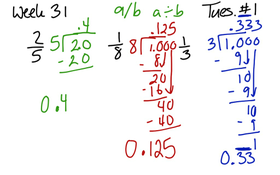 Week 31
2/5 5)20 .4
- 20
0.4
a/b a÷b
.125
1/8 8)1.000
- 8
20
- 16
40
- 40
0.125
Tues. #1
.333
1/3 3)1.000
- 9
10
- 9
10
- 9
1
0.33